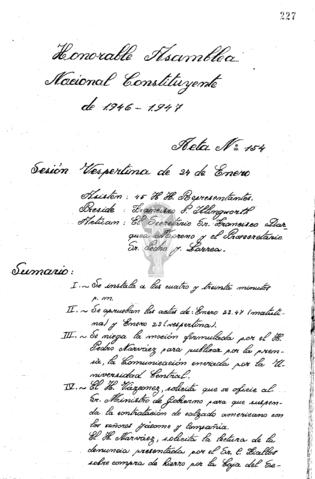 227
Honorable Asamblea
Nacional Constituyente
de 1946-1947
Acta Nº 154
Sesión Vespertina de 24 de Enero
Asisten: 45 H H. Representantes.
Preside: Francisco Illingworth
Actúan: El Secretario Sr. Francisco
Moreno y el Prosecretario
Sr. y Larrea.
Sumario:
I.~ Se instala a las cuatro y treinta minutos
p.m.
II.~ Se aprueban las actas de: Enero 22.47 (matuti-
na) y Enero 23 (vespertina).
III.~ Se niega la moción formulada por el H.
Pedro Narváez para publicar por la pren-
sa, la Comunicación enviada por la U-
niversidad Central.
IV.~ El H. Vázconez, solicita que se oficie al
Sr. Ministro de Gobierno para que suspen-
da la contratación de calzado americano con
los señores Jácome y Compañía.
El H. Narváez, solicita la lectura de la
denuncia presentada por el Sr. C.
sobre compra de hierro por la Caja del Se-